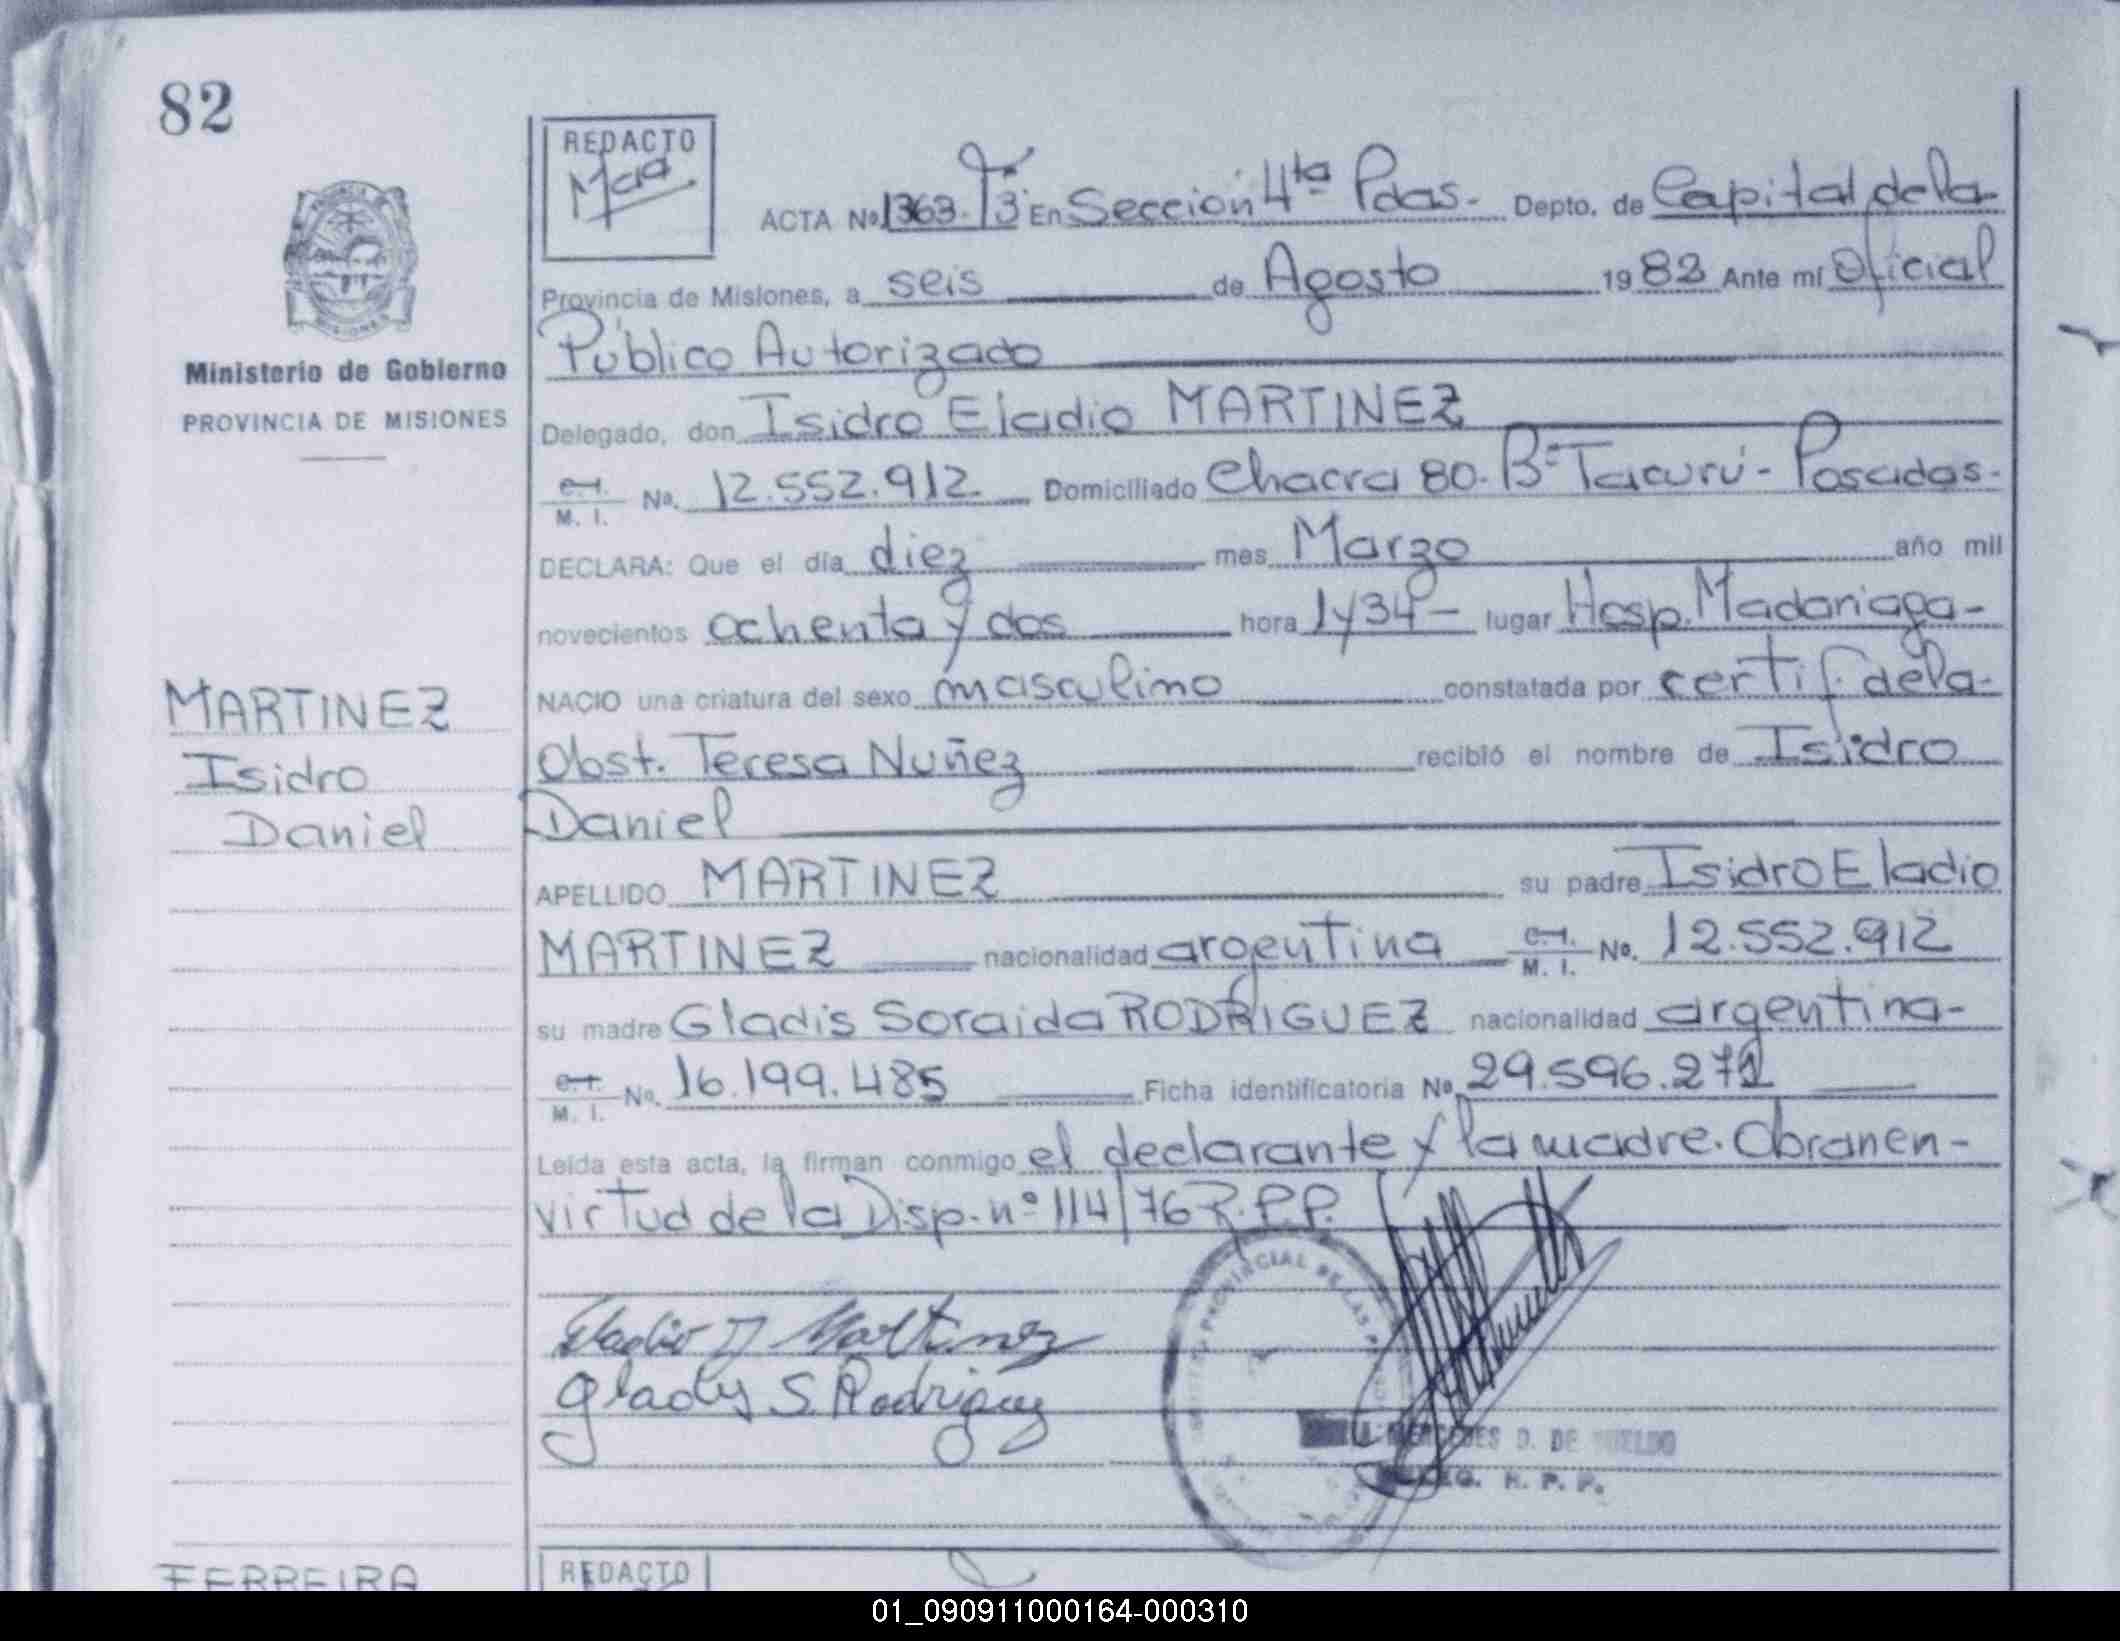 82
REDACTO
ACTA No. 1363. Tº 3 En Sección 4ta Pdas. Depto. de Capital de la
Provincia de Misiones, a seis de Agosto 1982 Ante mí Oficial
Público Autorizado
Ministerio de Gobierno
PROVINCIA DE MISIONES
Delegado, don Isidro Eladio MARTINEZ
C.I.
M. I. No. 12.552.912 Domiciliado Chacra 80. Bº Tacurú - Posadas.
DECLARA: Que el día diez mes Marzo año mil
novecientos ochenta y dos hora 1y34 lugar Hosp. Madariaga
NACIO una criatura del sexo masculino constatada por certif. de la
Obst. Teresa Nuñez recibió el nombre de Isidro
Daniel
MARTINEZ
Isidro
Daniel
APELLIDO MARTINEZ su padre Isidro Eladio
MARTINEZ nacionalidad argentina C.I. M. I. No. 12.552.912
su madre Gladis Soraida RODRIGUEZ nacionalidad argentina
C.I.
M. I. No. 16.199.485 Ficha identificatoria No. 29.596.271
Leída esta acta, la firman conmigo el declarante y la madre. Obran en
virtud de la Disp. nº 114/76 R.P.P.
Eladio I Martinez
Gladys S. Rodriguez
PROVINCIAL DE LAS
D. DE
R. P. P.
FERREIRA
REDACTO
01_090911000164-000310